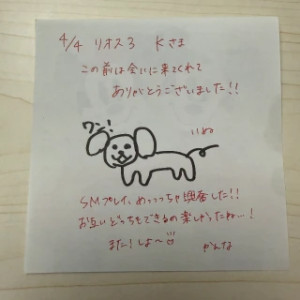 4/4 リオス3 Kさま
この前は会いに来てくれて
ありがとうございました!!
ワン!
いぬ
SMプレイ、めっっっちゃ興奮した!!
お互いどっちもできるの楽しかったねー!
また!しよ〜
かんな